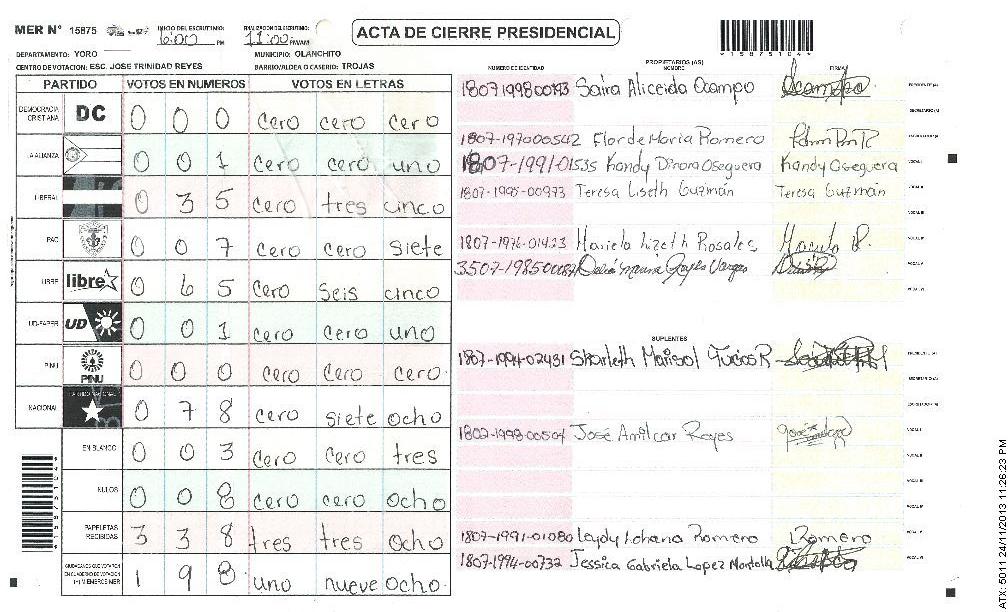 MER N° 15875 INICIO DEL ESCRUTINIO: 6:00 PM FINALIZACION DEL ESCRUTINIO: 11:00 PM/AM
ACTA DE CIERRE PRESIDENCIAL
*15875104*
DEPARTAMENTO: YORO MUNICIPIO: OLANCHITO
CENTRO DE VOTACION: ESC. JOSE TRINIDAD REYES BARRIO/ALDEA O CASERIO: TROJAS
PARTIDO VOTOS EN NUMEROS VOTOS EN LETRAS
DEMOCRACIA CRISTIANA DC 0 0 0 cero cero cero
LA ALIANZA 0 0 1 cero cero uno
LIBERAL 0 3 5 cero tres cinco
PAC 0 0 7 cero cero siete
LIBRE libre 0 6 5 cero seis cinco
UD-FAPER UD 0 0 1 cero cero uno
PINU PINU 0 0 0 cero cero cero
NACIONAL PARTIDO NACIONAL 0 7 8 cero siete ocho
EN BLANCO 0 0 3 cero cero tres
NULOS 0 0 8 cero cero ocho
PAPELETAS RECIBIDAS 3 3 8 tres tres ocho
CIUDADANOS QUE VOTARON EN CUADERNO DE VOTACION (+) MIEMBROS MER 1 9 8 uno nueve ocho
PROPIETARIOS (AS)
NUMERO DE IDENTIDAD NOMBRE FIRMA
1807-1998-00193 Saira Aliceida Ocampo Ocampo
1807-1970-00542 Flor de Maria Romero
1807-1991-01535 Kandy Dinora Oseguera Kandy Oseguera
1807-1995-00973 Teresa Liseth Guzmán Teresa Guzmán
1807-1976-01423 Mariela Lizeth Rosales
3507-1985-00087 Reyes Vargas
SUPLENTES
1807-1994-02431 Sharleth Marisol Turcios R
1802-1998-00504 José Amilcar Reyes
1807-1991-01080 Leydy Lohana Romero Romero
1807-1994-00732 Jessica Gabriela Lopez
ATX: 5011 24/11/2013 11:26:23 PM